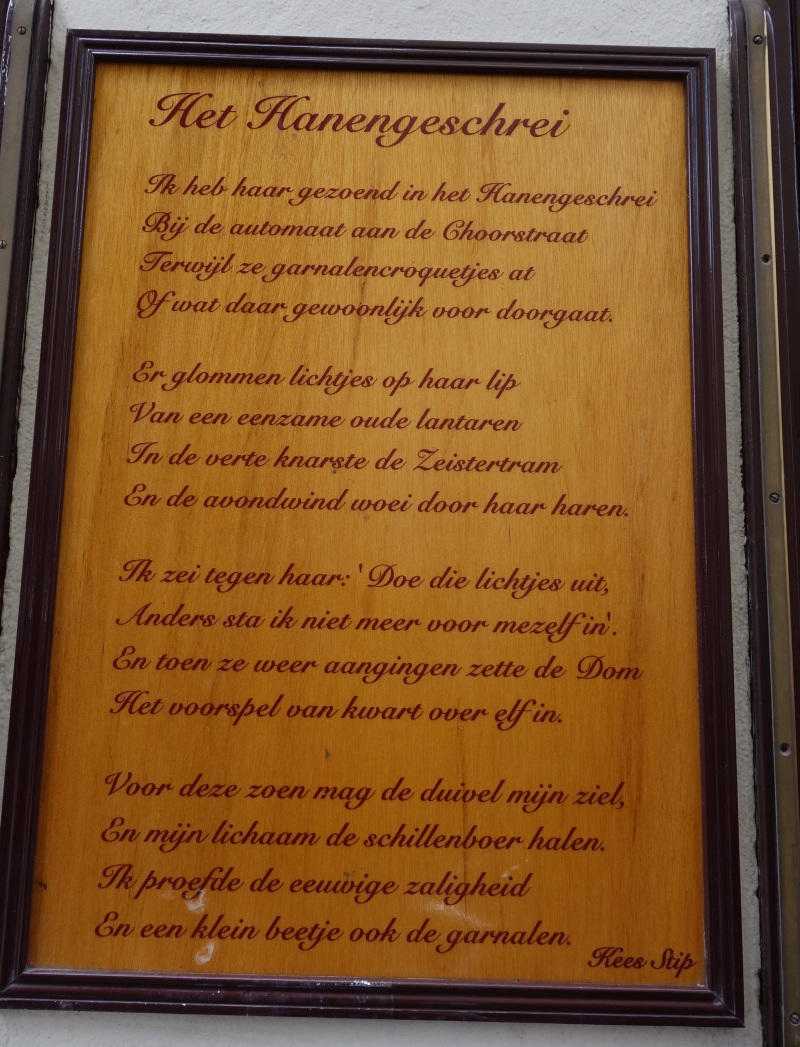 Het Hanengeschrei
Ik heb haar gezoend in het Hanengeschrei
Bij de automaat aan de Choorstraat
Terwijl ze garnalencroquetjes at
Of wat daar gewoonlijk voor doorgaat.
Er glommen lichtjes op haar lip
Van een eenzame oude lantaren
In de verte knarste de Zeistertram
En de avondwind woei door haar haren.
Ik zei tegen haar: ' Doe die lichtjes uit,
Anders sta ik niet meer voor mezelf in'.
En toen ze weer aangingen zette de Dom
Het voorspel van kwart over elf in.
Voor deze zoen mag de duivel mijn ziel,
En mijn lichaam de schillenboer halen.
Ik proefde de eeuwige zaligheid
En een klein beetje ook de garnalen.
Kees Stip